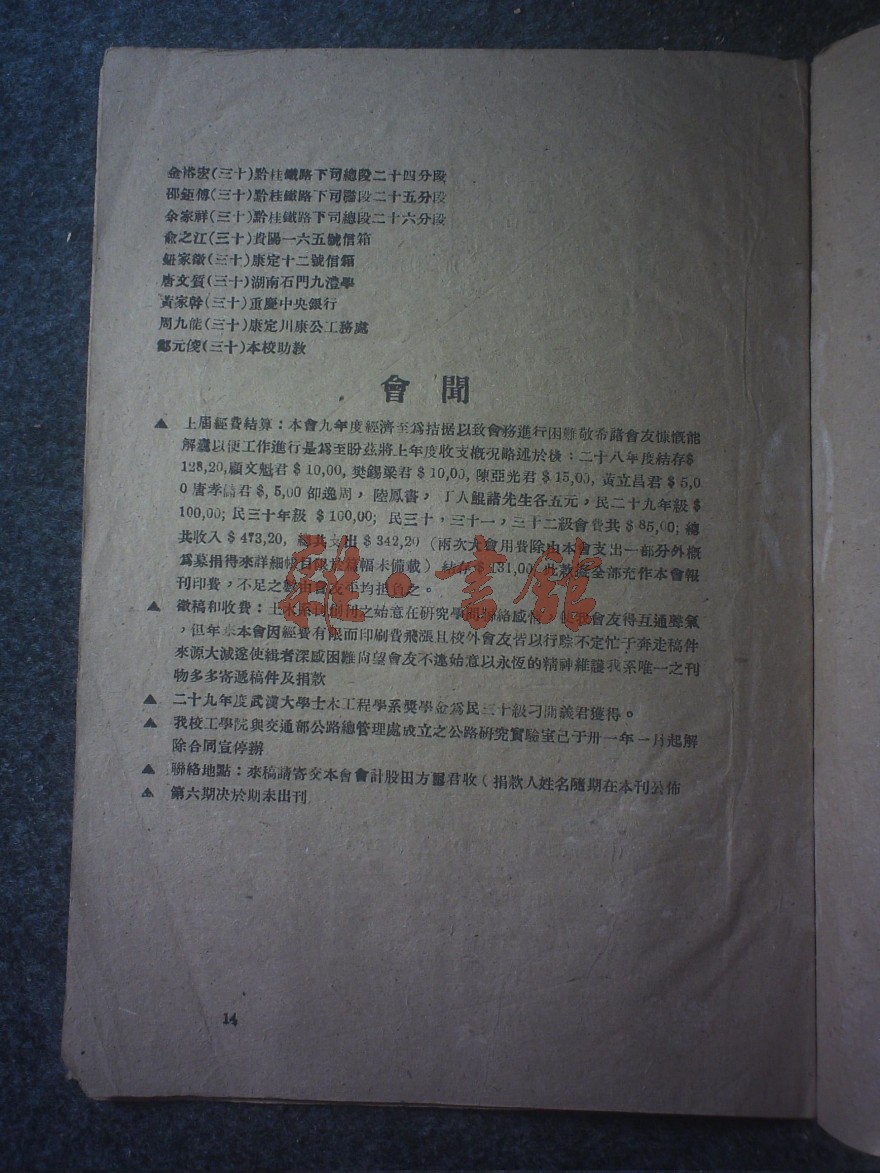 金裕宏(三十)黔桂鐵路下司總段二十四分段
邵鉅傅(三十)黔桂鐵路下司總段二十五分段
余家祥(三十)黔桂鐵路下司總段二十六分段
俞之江(三十)貴陽一六五號信箱
鈕家徵(三十)康定十二號信箱
唐文質(三十)湖南石門九澧學
黃家幹(三十)重慶中央銀行
周九能(三十)康定川康公工務處
鄒元俊(三十)本校助教
會聞
▲ 上屆經費結算：本會九年度經濟至爲拮据以致會務進行困難敬希諸會友慷慨能
解囊以便工作進行是爲至盼茲將上年度收支概況略述於後：二十八年度結存$
128,20,顧文魁君$10,00,樊錫梁君$10,00,陳亞光君$15,00,黃立昌君$5,0
0唐孝 君$,5,00邵逸周，陸鳳書，丁人鯤諸先生各五元，民二十九年級$
100,00;民三十年級 $100,00;民三十，三十一，三十二級會費共$85,00;總
共收入$473,20, 總共支出$342,20(兩次大會用費除由本會支出一部分外概
爲募捐得來詳細帳目限於篇幅未備載)結存$131,00,此數擬全部充作本會報
刊印費，不足之數由會友平均担負之。
▲ 徵稿和收費：土木系刊創刊之始意在研究學問聯絡感情，使我會友得互通聲氣
，但年來本會因經費有限而印刷費飛漲且校外會友皆以行踪不定忙于奔走稿件
來源大減遂使緝者深感困難尚望會友不違始意以永恆的精神維護我系唯一之刊
物多多寄遞稿件及捐款
▲ 二十九年度武漢大學土木工程學系獎學金爲民三十級刁開義君獲得。
▲ 我校工學院與交通部公路總管理處成立之公路研究實驗室已于卅一年一月起解
除合同宣停辦
▲ 聯絡地點：來稿請寄交本會會計股田方圖君收(捐款人姓名隨期在本刊公佈
▲ 第六期決於期末出刊
14
雜·書館